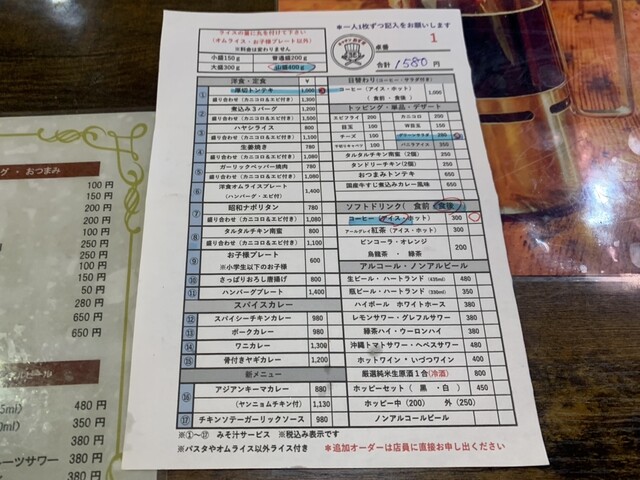 ＊一人1枚ずつ記入をお願いします
ライスの量に丸を付けて下さい
(オムライス・お子様プレート以外)
※料金は変わりません
小盛150ｇ 普通盛200ｇ
大盛300ｇ 山盛400ｇ
卓番 1
合計 1580 円
洋食・定食 ￥
① 厚切トンテキ 1,000
盛り合わせ (カニコロ&エビ付き) 1,300
② 煮込み3バーグ 1,200
盛り合わせ (カニコロ&エビ付き) 1,500
③ ハヤシライス 800
盛り合わせ (カニコロ&エビ付き) 1,100
④ 生姜焼き 780
盛り合わせ (カニコロ&エビ付き) 1,080
⑤ ガーリックペッパー焼肉 780
盛り合わせ (カニコロ&エビ付き) 1,080
⑥ 洋食オムライスプレート
(ハンバーグ・エビ付) 1,400
⑦ 昭和ナポリタン 780
盛り合わせ (カニコロ&エビ付き) 1,080
⑧ タルタルチキン南蛮 800
盛り合わせ (カニコロ&エビ付き) 1,100
⑨ お子様プレート
※小学生以下のお子様 600
⑩ さっぱりおろし唐揚げ 800
⑪ ハンバーグプレート 1,400
スパイスカレー
⑫ スパイシーチキンカレー 980
⑬ ポークカレー 980
⑭ ワニカレー 1,300
⑮ 骨付きヤギカレー 1,200
新メニュー
⑯ アジアンキーマカレー 880
(ヤンニョムチキン付) 1,130
⑰ チキンソテーガーリックソース 980
※①~⑰ みそ汁サービス ※税込み表示です
※パスタやオムライス以外ライス付き
日替わり (コーヒー・サラダ付き)
コーヒー (アイス・ホット)
(食前・食後) 1,000
トッピング・単品・デザート
エビフライ 100 カニコロ 200
目玉 100 別目玉 100
チーズ 100 グリーンサラダ 280
千切りキャベツ 100 バニラアイス 350
タルタルチキン南蛮 (2個) 250
タンドリーチキン(2個) 250
おつまみトンテキ 650
国産牛すじ煮込みカレー風味 650
ソフトドリンク( 食前 ・ 食後 )
コーヒー (アイス・ホット) 300
アールグレイ紅茶 (アイス・ホット) 300
ピンコーラ・オレンジ
烏龍茶 ・ 緑茶 200
アルコール・ノンアルビール
生ビール・ハートランド 480
瓶ビール・ハートランド 350
ハイボール ホワイトホース 380
レモンサワー・グレフルサワー 380
緑茶ハイ・ウーロンハイ 380
沖縄トマトサワー・ヘベスサワー 480
ホットワイン・いづつワイン 400
厳選純米生原酒1合(冷酒) 800
ホッピーセット ( 黒 ・ 白 ) 450
ホッピー中 (200) 外 (250)
ノンアルコールビール
＊追加オーダーは店員に直接お申し出ください
グ ・ おつまみ
100 円
150 円
200 円
200 円
100 円
250 円
250 円
90 円
150 円
100 円
50 円
280 円
650 円
650 円
480 円
350 円
380 円
380 円
380 円